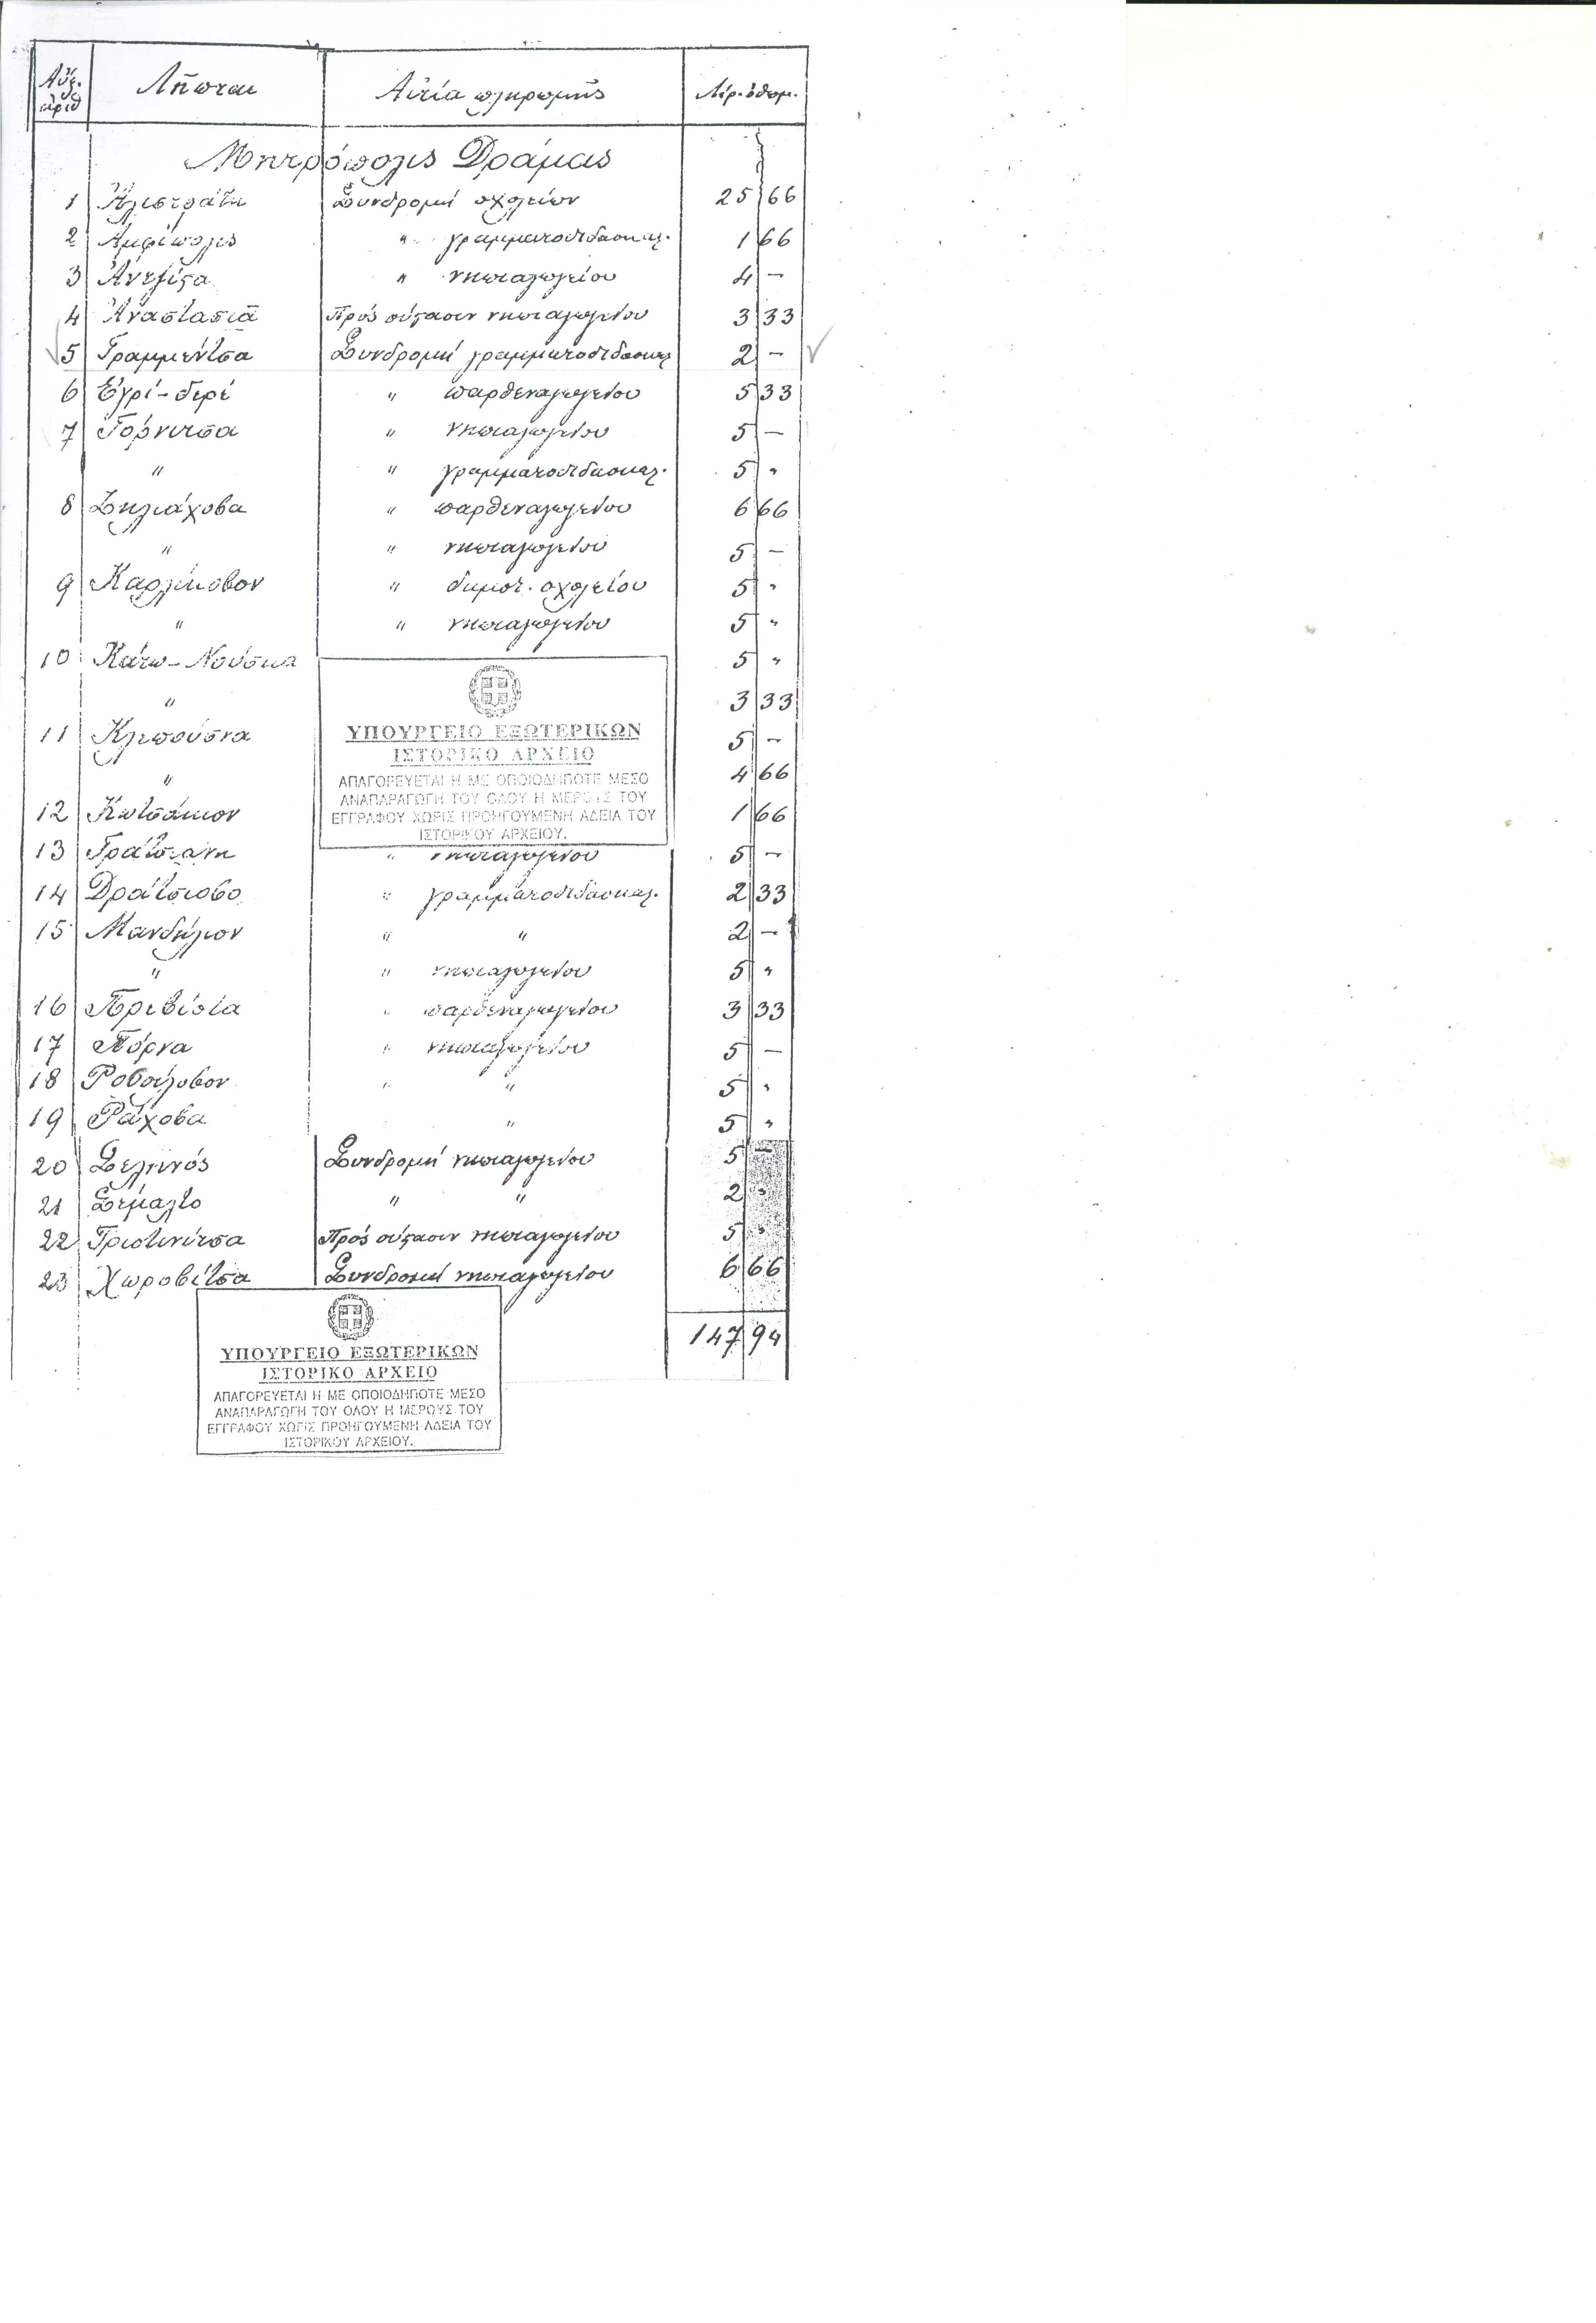 Αὔξ. ἀριθ Λῆπται Αἰτία πληρωμῆς Λίρ. ὀθωμ.
Μητρόπολις Δράμας
1 Ἀλιστράτη Συνδρομή σχολείων 25 66
2 Ἀμφίπολις " γραμματοδιδασκαλ. 1 66
3 " νηπιαγωγείου 4 -
4 Ἀναστασιά Πρός σύστασιν νηπιαγωγείου 3 33
5 Γραμμέντσα Συνδρομή γραμματοδιδασκαλ 2 -
6 Ἐγρί-δερέ " παρθεναγωγείου 5 33
7 Γόρνιτσα " νηπιαγωγείου 5 -
" " γραμματοδιδασκαλ. 5 "
8 Ζηλιάχοβα " παρθεναγωγείου 6 66
" " νηπιαγωγείου 5 -
9 Καρλίκοβον " δημοτ. σχολείου 5 "
" " νηπιαγωγείου 5 "
10 Κάτω-Νούσκα 5 "
" 3 33
ΥΠΟΥΡΓΕΙΟ ΕΞΩΤΕΡΙΚΩΝ
ΙΣΤΟΡΙΚΟ ΑΡΧΕΙΟ
ΑΠΑΓΟΡΕΥΕΤΑΙ Η ΜΕ ΟΠΟΙΟΔΗΠΟΤΕ ΜΕΣΟ
ΑΝΑΠΑΡΑΓΩΓΗ ΤΟΥ ΟΛΟΥ Η ΜΕΡΟΥΣ ΤΟΥ
ΕΓΓΡΑΦΟΥ ΧΩΡΙΣ ΠΡΟΗΓΟΥΜΕΝΗ ΑΔΕΙΑ ΤΟΥ
ΙΣΤΟΡΙΚΟΥ ΑΡΧΕΙΟΥ.
11 Κλεπούσνα 5 -
" 4 66
12 Κιοτσάκιον 1 66
13 Γράτσιανη " νηπιαγωγείου 5 -
14 Δράτσιοβο " γραμματοδιδασκαλ. 2 33
15 Μανδήλιον " " 2 -
" " νηπιαγωγείου 5 "
16 Πριβίστα " παρθεναγωγείου 3 33
17 Πόρνα " νηπιαγωγείου 5 -
18 Ροδολίβον " " 5 "
19 Ράχοβα " 5 "
20 Σεληνός Συνδρομή νηπιαγωγείου 5 -
21 Σέμαλτο " " 2 "
22 Γριστινίτσα Πρός σύστασιν νηπιαγωγείου 5 "
23 Χωροβίτσα Συνδρομή νηπιαγωγείου 6 66
147 94
ΥΠΟΥΡΓΕΙΟ ΕΞΩΤΕΡΙΚΩΝ
ΙΣΤΟΡΙΚΟ ΑΡΧΕΙΟ
ΑΠΑΓΟΡΕΥΕΤΑΙ Η ΜΕ ΟΠΟΙΟΔΗΠΟΤΕ ΜΕΣΟ
ΑΝΑΠΑΡΑΓΩΓΗ ΤΟΥ ΟΛΟΥ Η ΜΕΡΟΥΣ ΤΟΥ
ΕΓΓΡΑΦΟΥ ΧΩΡΙΣ ΠΡΟΗΓΟΥΜΕΝΗ ΑΔΕΙΑ ΤΟΥ
ΙΣΤΟΡΙΚΟΥ ΑΡΧΕΙΟΥ.